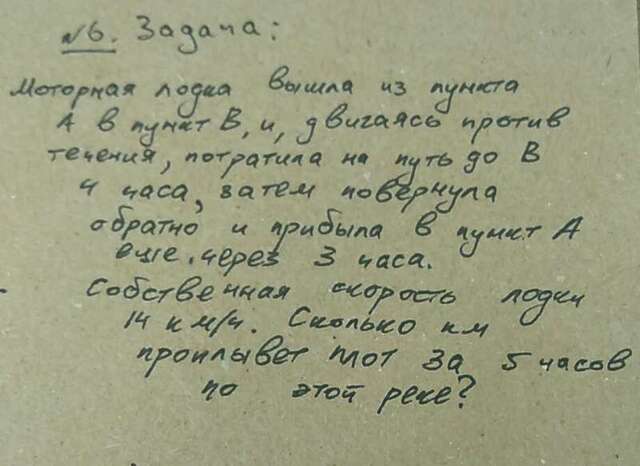 №6. Задача:
Моторная лодка вышла из пункта
А в пункт В, и, двигаясь против
течения, потратила на путь до В
4 часа, затем повернула
обратно и прибыла в пункт А
еще через 3 часа.
Собственная скорость лодки
14 км/ч. Сколько км
проплывет плот за 5 часов
по этой реке?